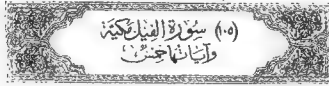 (١٠٥) سُورَةُ الفِيلِ مَكِيَّة
وَآيَاتُهَا خَمْسٌ